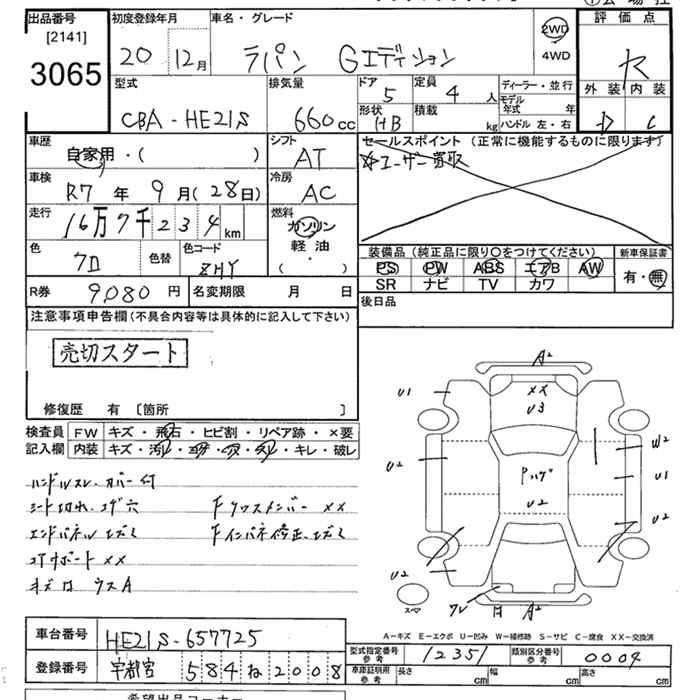 出品番号
[2141]
3065
初度登録年月
20 12月
車名・グレード
ラパン Gエディション
2WD
4WD
評価点
外装 内装
D C
型式
CBA-HE21S
排気量
660cc
ドア
5
定員
4人
形状
HB
積載
kg
ディーラー・並行
モデル年式 年
ハンドル 左・右
車歴
自家用・( )
シフト
AT
セールスポイント(正常に機能するものに限ります)
ユーザー買取
車検
R7年9月(28日)
冷房
AC
走行
16万7千234km
燃料
ガソリン
軽油
( )
色
クロ
色替
色コード
ZHY
装備品(純正品に限り○をつけてください)
PS PW ABS エアB AW
SR ナビ TV カワ
新車保証書
有・無
R券 9,080円
名変期限 月 日
後日品
注意事項申告欄(不具合内容等は具体的に記入して下さい)
売切スタート
修復歴 有 〔箇所 〕
検査員 FW キズ・飛石・ヒビ割・リペア跡・×要
記入欄 内装 キズ・汚レ・コゲ・ハズ・スレ・キレ・破レ
ハンドルスレ.カバー付
シート切れ.コゲ穴 Fクロスメンバー XX
エンドパネルエガミ Fインパネ修正.エガミ
コアサポート XX
キズロ ウスA
A2
XX
U3
U1
U2
Pハゲ
U2
W2
U1
U2
U2
スペア
A2
A-キズ E-エクボ U-凹み W-補修跡 S-サビ C-腐食 XX-交換済
車台番号 HE21S-657725
登録番号 宇都宮 584 ね 2008
型式指定番号
参考
12351
類別区分番号
参考
0004
車庫証明用
参考
長さ cm 幅 cm 高さ cm
希望出品コーナー